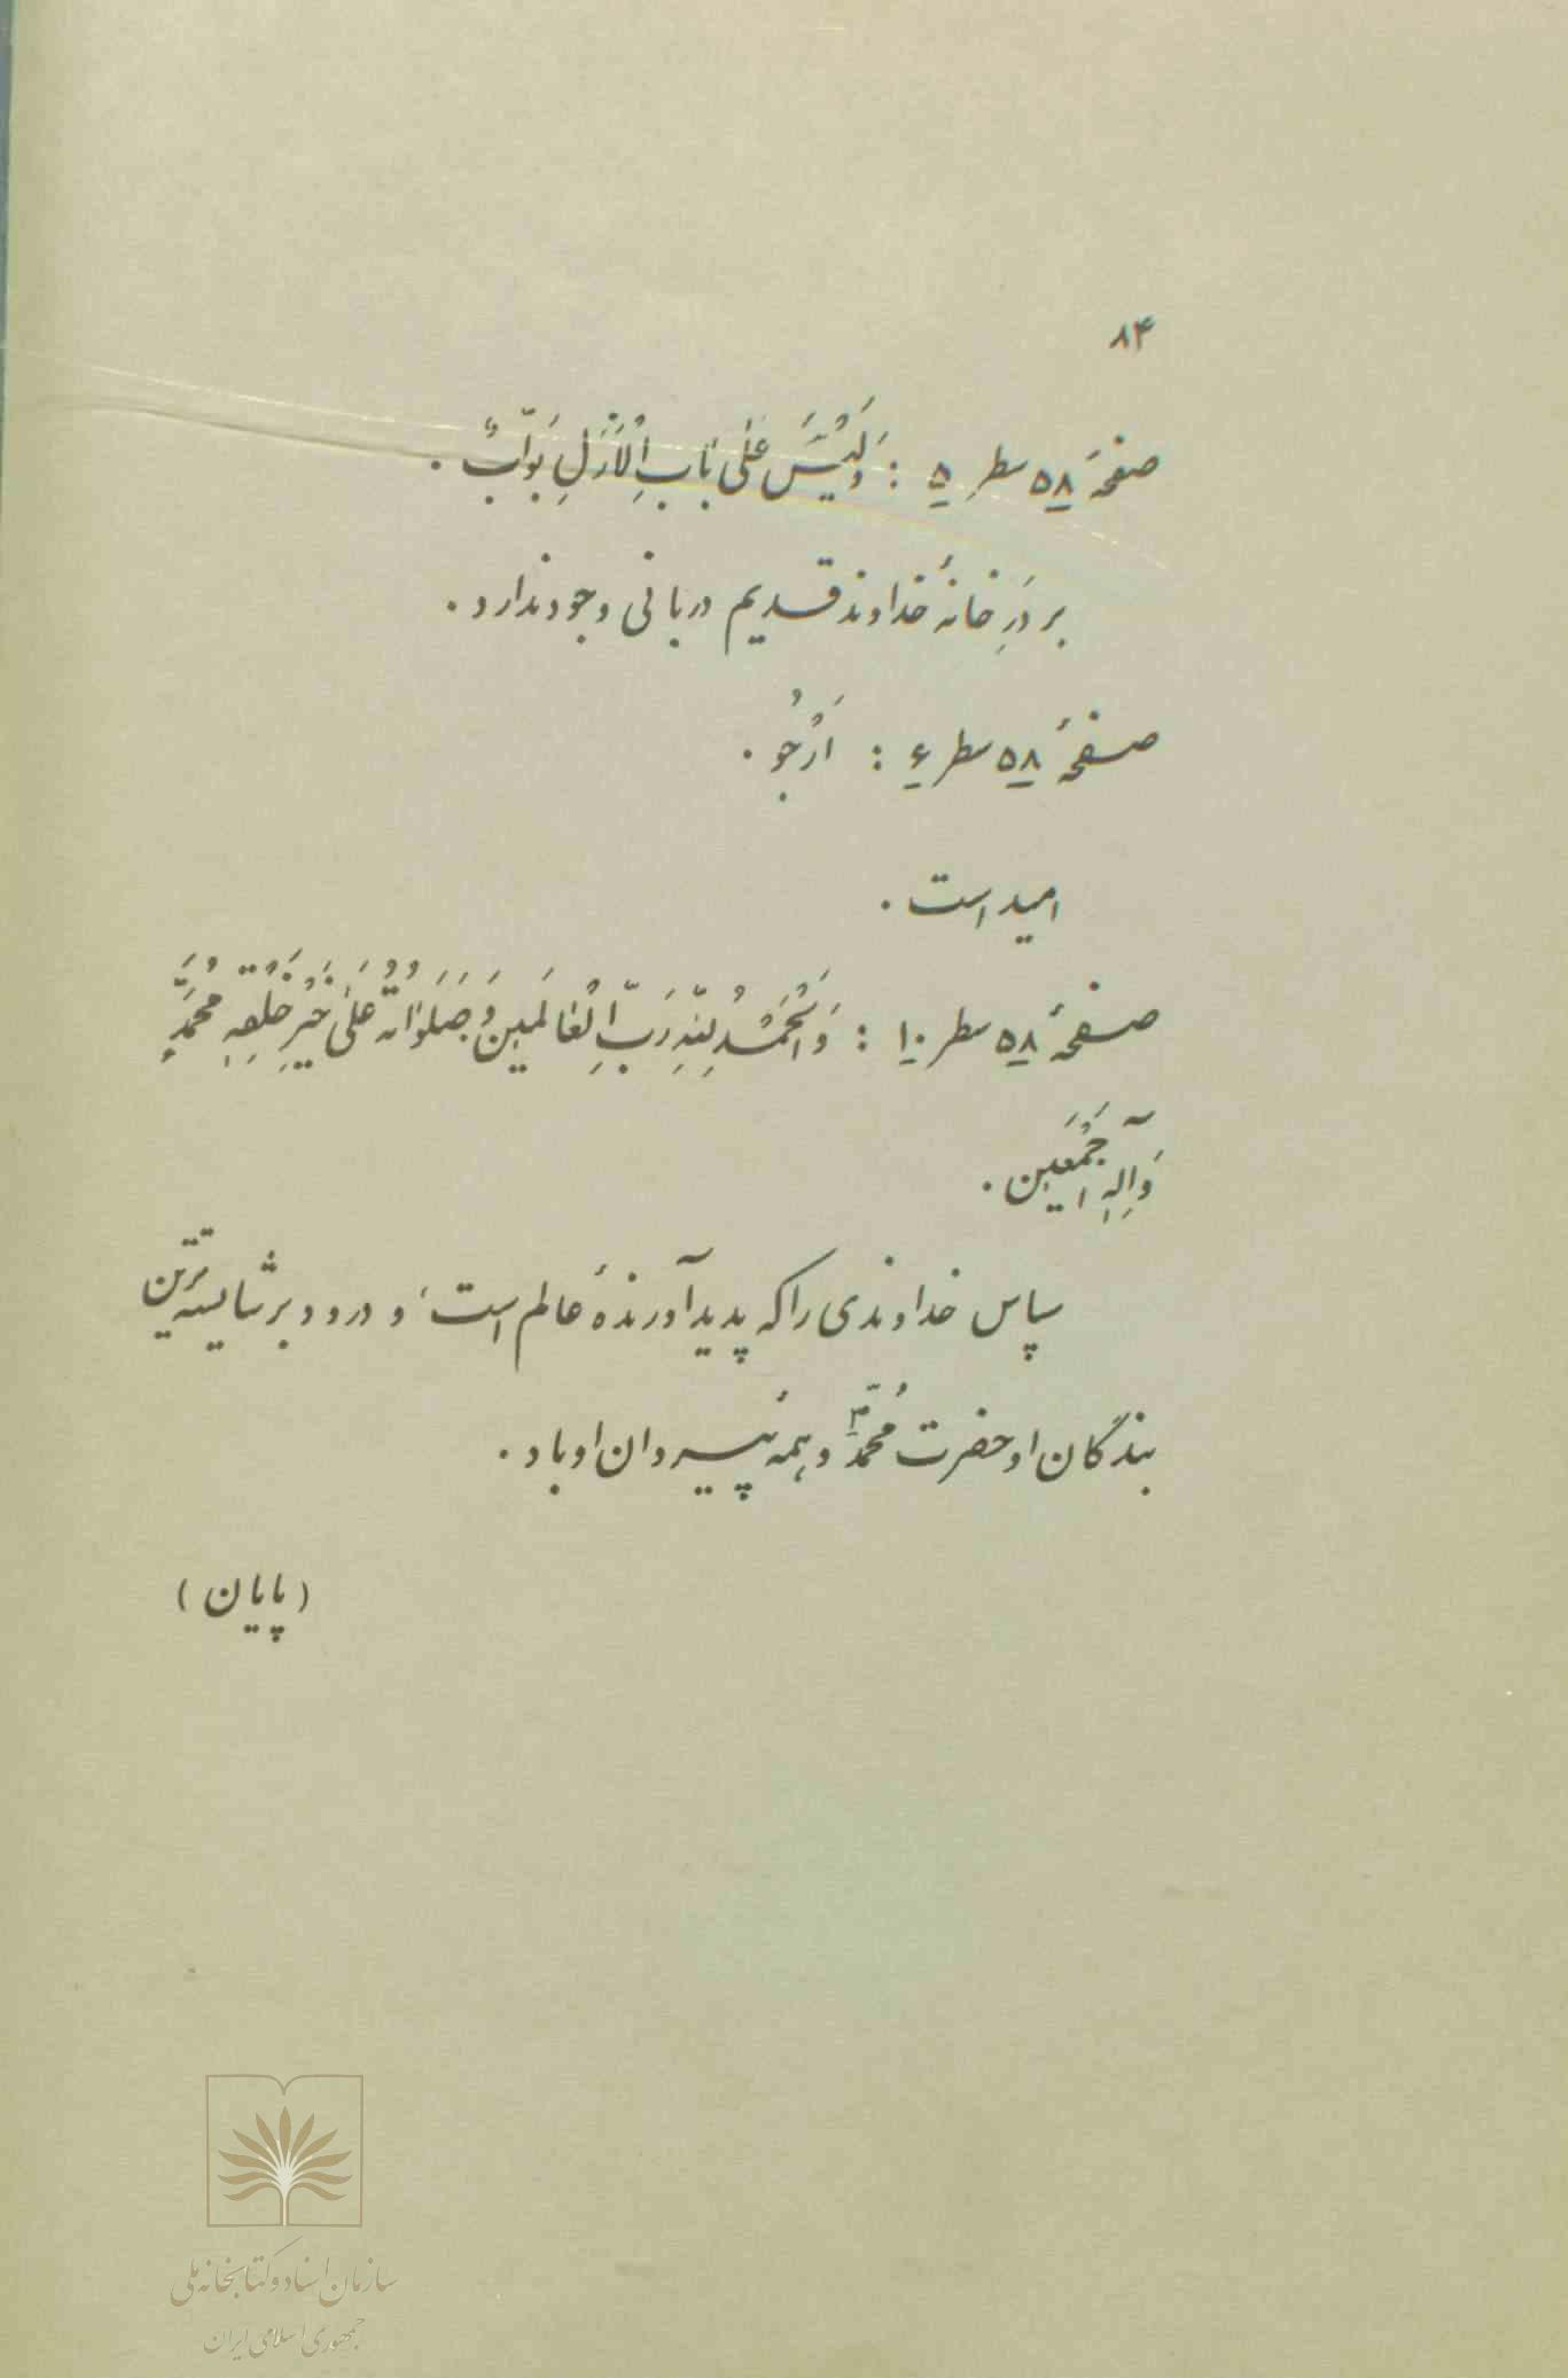 ۸۴
صفحهٔ ۵۸ سطرِ ۵ : وَلَیْسَ عَلٰی بٰابِ الْاَزَلِ بَوّٰابٌ .
بر دَرِ خانهٔ خداوند قدیم دربانی وجود ندارد .
صفحهٔ ۵۸ سطر ۶ : اَرْجُو .
امید است .
صفحهٔ ۵۸ سطر ۱۰ : وَالْحَمْدُ لِلّٰهِ رَبِّ الْعٰالَمینَ وَ صَلَوٰاتُهُ عَلٰی خَیْرِ خَلْقِهِ مُحَمَّدٍ
وَآلِهِ اَجْمَعین .
سپاس خداوندی را که پدیدآورندهٔ عالم است، و درود بر شایسته‌ترین
بندگان او حضرت مُحمّدؐ و همهٔ پیروان او باد .
(پایان)
سازمان اسناد و کتابخانه ملی
جمهوری اسلامی ایران